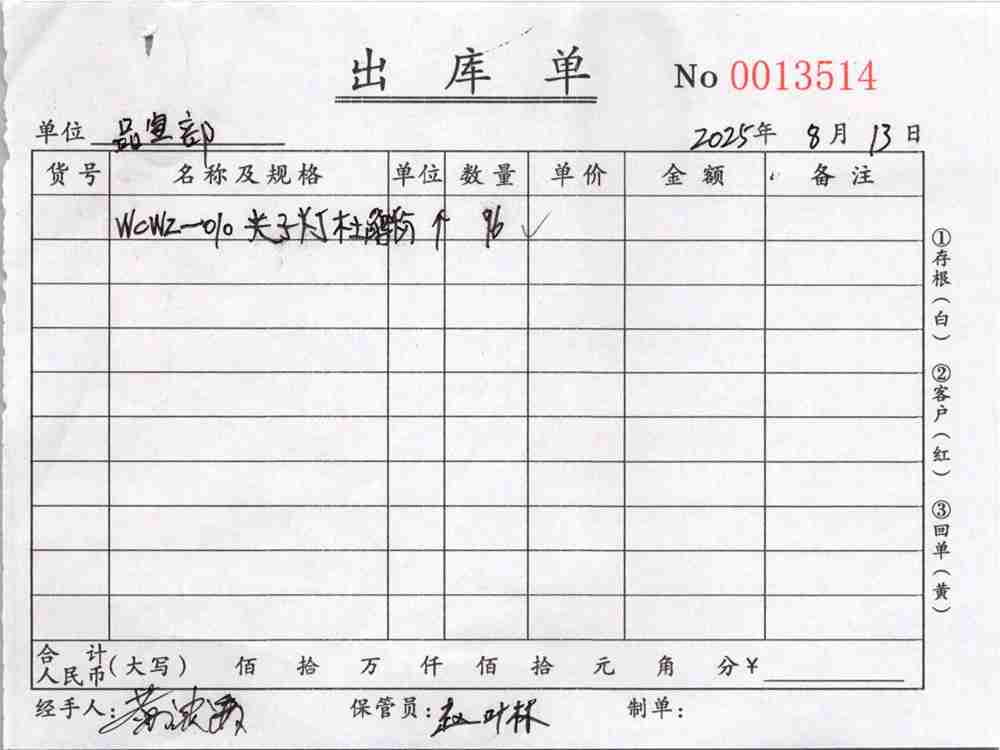 出 库 单
No 0013514
单位 品宣部
2025年 8月 13日
货号 名称及规格 单位 数量 单价 金额 备注
WCWZ-010 个 96
合计人民币(大写) 佰 拾 万 仟 佰 拾 元 角 分¥
经手人: 保管员:赵叶林 制单:
①存根(白) ②客户(红) ③回单(黄)